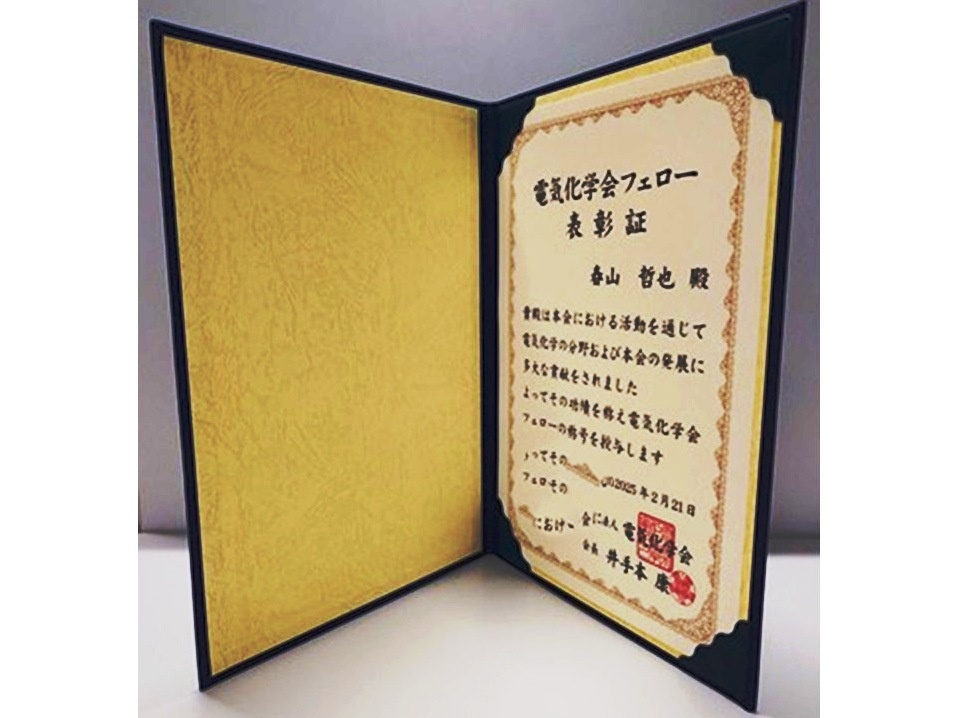 電気化学会フェロー
表彰証
春山 哲也 殿
貴殿は本会における活動を通じて
電気化学の分野および本会の発展に
多大な貢献をされました
よってその功績を称え電気化学会
フェローの称号を授与します
ってその
2025年2月21日
フェロその
におけ
会に法人 電気化学会
会長 井手本 康